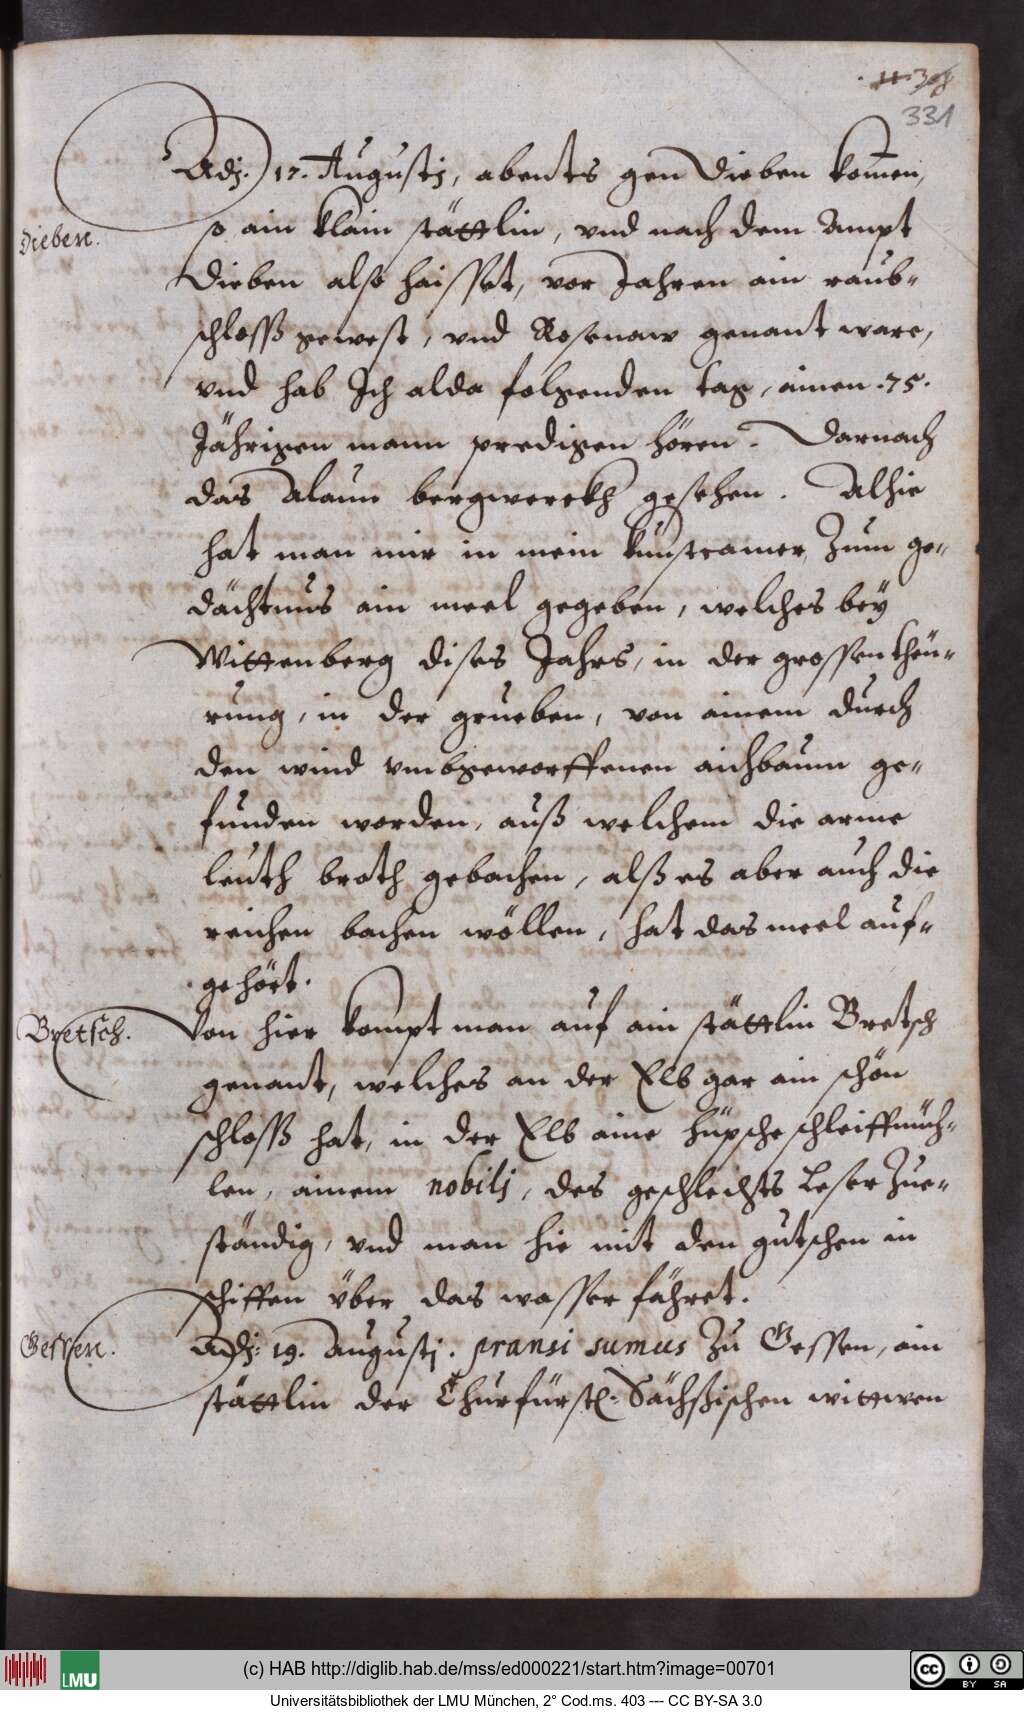 331
Adj. 17. Augustj, abents gen Dieben komen,
Dieben.
so ain klain stättlin, vnd nach dem Ampt
Dieben also haisset, vor Jahren ain raub-
schloss gewest, vnd Rosenaw genant ware,
vnd hab Ich alda folgenden tag, ainen .75.
Jährigen mann predigen hören. Darnach
das Alaun bergwerckh gesehen. Alhie
hat man mir in mein kunstcamer, Zum ge-
dächtnus ain meel gegeben, welches bey
Wittenberg dises Jahrs, in der grossen theu-
rung, in der grueben, von ainem durch
den wind vmbgeworffenen aichbaum ge-
funden worden, auß welchem die arme
leuth broth gebachen, alß es aber auch die
reichen bachen wöllen, hat das meel auf-
gehört.
Bretsch.
Von hier kompt man auf ain stättlin Bretsch
genant, welches an der Elb gar ain schön
schloss hat, in der Elb aine hüpsche schleiffmüh-
len, ainem nobilj, des geschlechts Leser Zue-
ständig, vnd man hie mit den gutschen in
schiffen über das wasser fähret.
Gessen.
Adj: 19. Augustj. pransi sumus Zu Gessen, ain
stättlin der Churfürstl. Sächßischen wittwen
LMU
(c) HAB http://diglib.hab.de/mss/ed000221/start.htm?image=00701
cc BY SA
Universitätsbibliothek der LMU München, 2° Cod.ms. 403 --- CC BY-SA 3.0